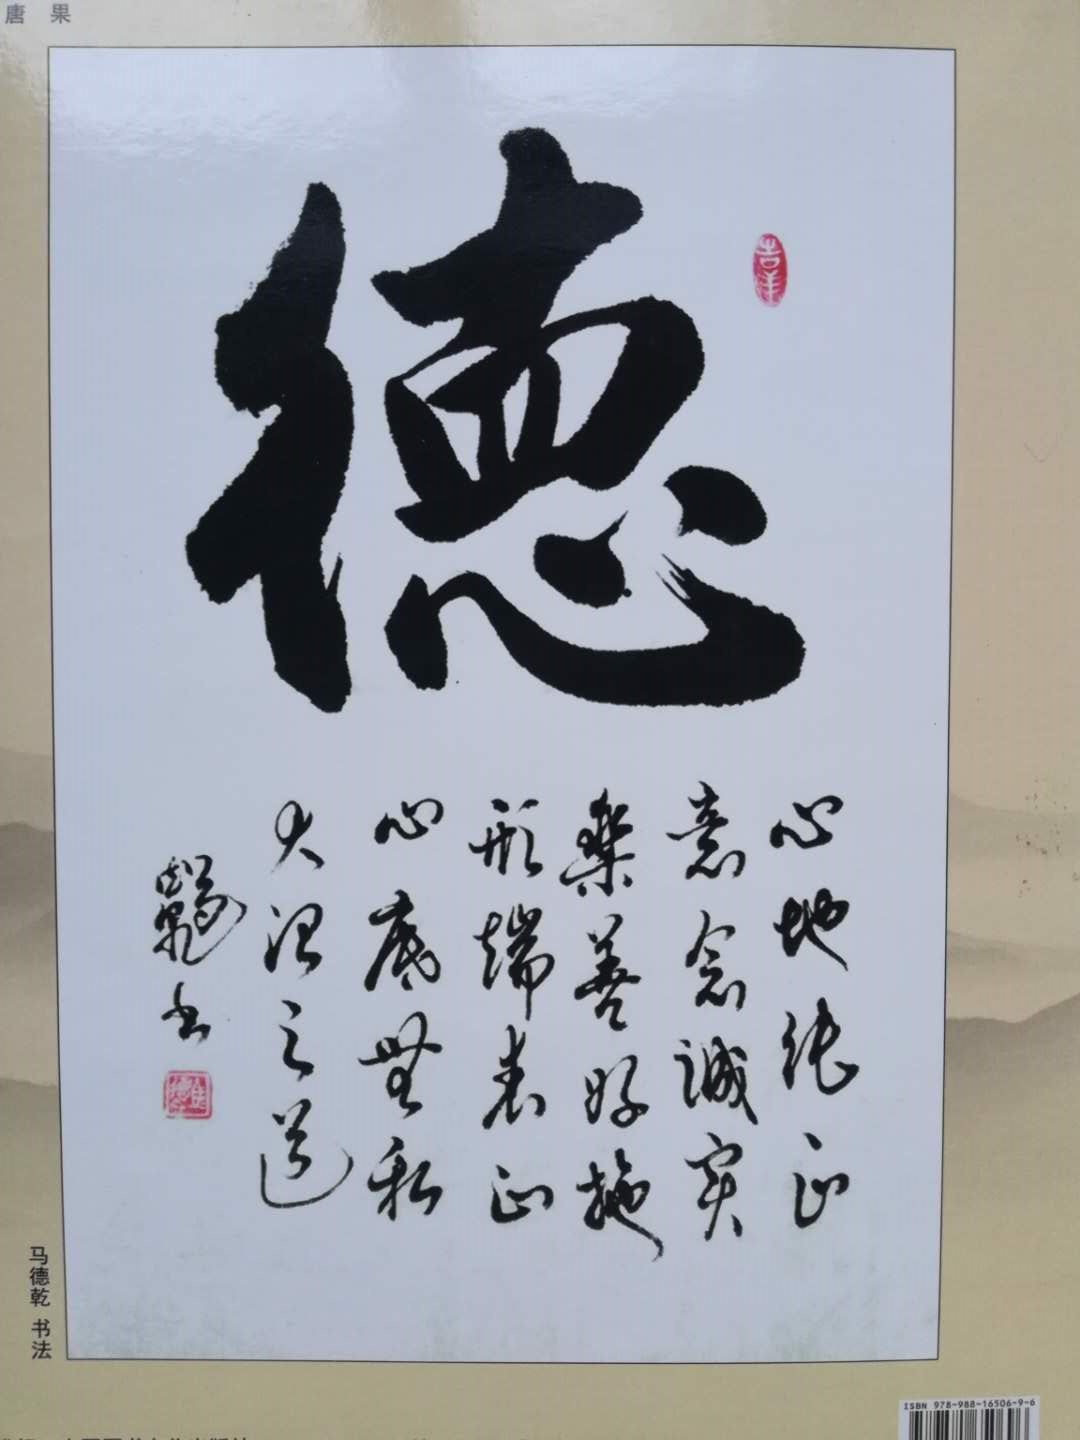 唐 果
德
吉祥
心地纯正
意念诚实
樂善好施
形端表正
心底無私
大治之道
书
马德乾 书法
ISBN 978-988-16506-9-6